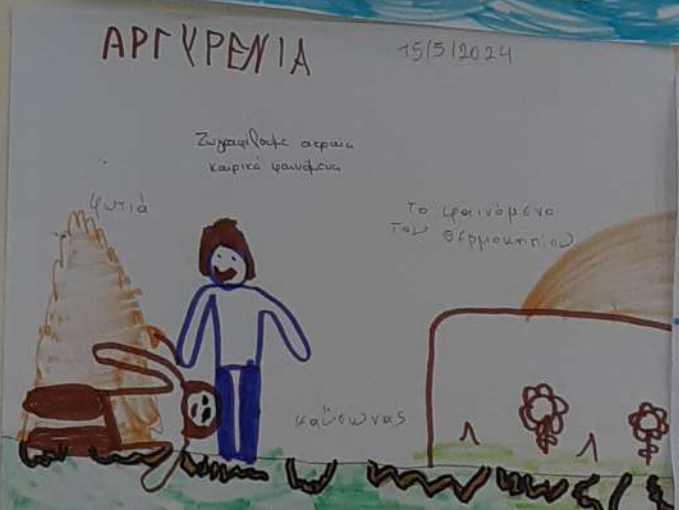 ΑΡΓΥΡΕΝΙΑ
15/5/2024
Ζωγραφίζουμε ακραία
καιρικά φαινόμενα
φωτιά
Το φαινόμενο
του θερμοκηπίου
καύσωνας